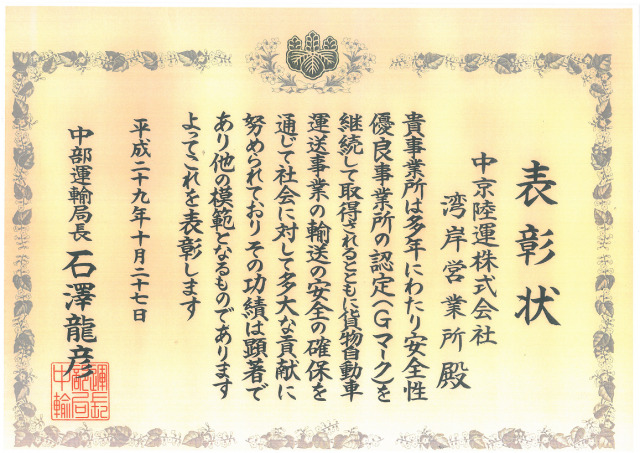 表彰状
中京陸運株式会社
湾岸営業所殿
貴事業所は多年にわたり安全性
優良事業所の認定(Gマーク)を
継続して取得されるとともに貨物自動車
運送事業の輸送の安全の確保を
通じて社会に対して多大な貢献に
努められておりその功績は顕著で
あり他の模範となるものであります
よってこれを表彰します
平成二十九年十月二十七日
中部運輸局長石澤龍彦